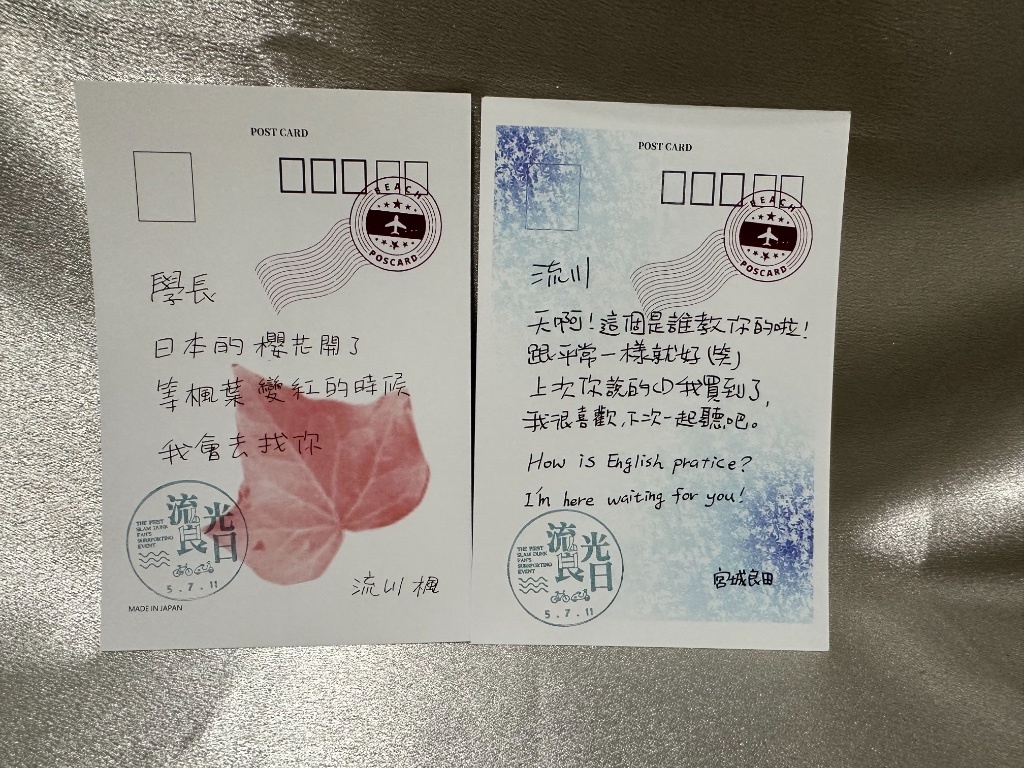 POST CARD
BEACH
POSCARD
學長
日本的櫻花開了
等楓葉變紅的時候
我會去找你
流光
良日
THE FIRST
SLAM DUNK
FAN'S
SUPPORTING
EVENT
5.7.11
流川楓
MADE IN JAPAN
POST CARD
BEACH
POSCARD
流川
天啊!這個是誰教你的啦!
跟平常一樣就好(笑)
上次你說的CD我買到了,
我很喜歡,下次一起聽吧。
How is English pratice?
I'm here waiting for you!
流光
良日
THE FIRST
SLAM DUNK
FAN'S
SUPPORTING
EVENT
5.7.11
宮城良田